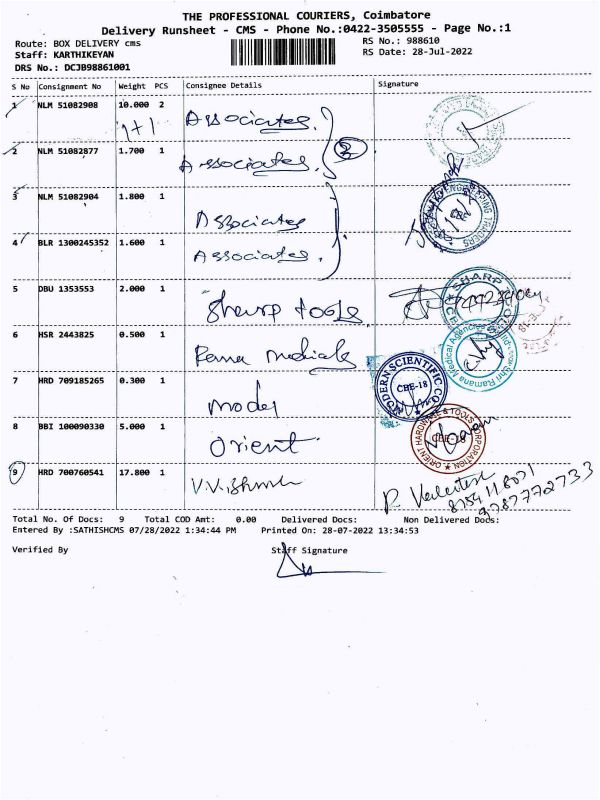 THE PROFESSIONAL COURIERS, Coimbatore
Delivery Runsheet - CMS - Phone No.:0422-3505555 - Page No.:1
Route: BOX DELIVERY cms
RS No.: 988610
Staff: KARTHIKEYAN
RS Date: 28-Jul-2022
DRS No.: DCJB98861001
S No Consignment No Weight PCS Consignee Details Signature
1 NLM 51082908 10.000 2 Associates
1+1
2 NLM 51082877 1.700 1 Associates
3 NLM 51082904 1.800 1 Associates
4 BLR 1300245352 1.600 1 Associates
5 DBU 1353553 2.000 1 Sharp tools
6 HSR 2443825 0.500 1 Rama medicals
7 HRD 709185265 0.300 1 Modern
MODERN SCIENTIFIC CO
CBE-18
8 BBI 100090330 5.000 1 Orient
ORIENT HARDWARE & TOOLS CORPORATION
CBE-18
9 HRD 700760541 17.800 1
8754118071
9787772733
Total No. Of Docs: 9 Total COD Amt: 0.00 Delivered Docs: Non Delivered Docs:
Entered By :SATHISHCMS 07/28/2022 1:34:44 PM Printed On: 28-07-2022 13:34:53
Verified By Staff Signature